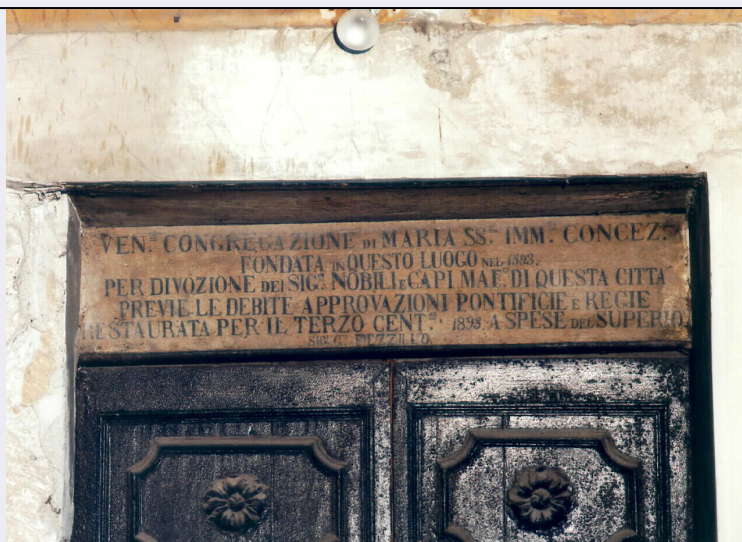 VEN.LE CONGREGAZIONE DI MARIA SS.MA IMM.TA CONCEZ.NE
FONDATA IN QUESTO LUOGO NEL 1593.
PER DIVOZIONE DEI SIG.RI NOBILI E CAPI MAE.RI DI QUESTA CITTÀ
PREVIE LE DEBITE APPROVAZIONI PONTIFICIE E REGIE
RESTAURATA PER IL TERZO CENT.RIO 1898 A SPESE DEL SUPERIO
PEZZILLO